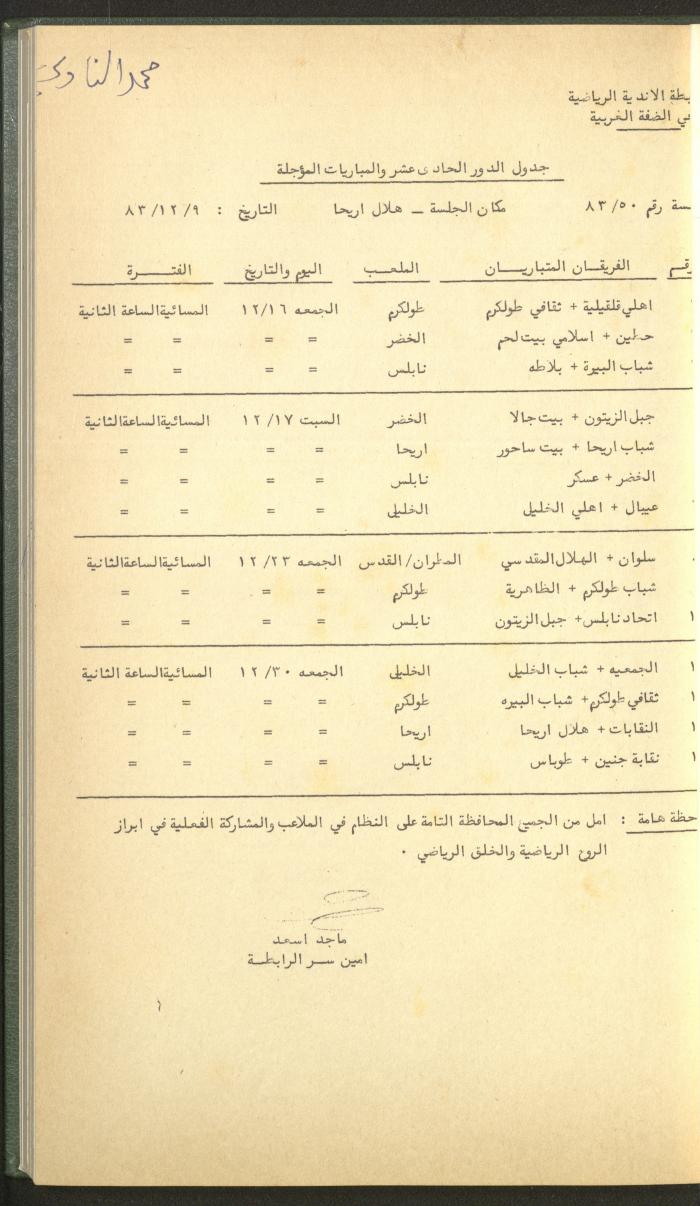 محمد النادي
بطة الاندية الرياضية
في الضفة الغربية
جدول الدور الحادى عشر والمباريات المؤجلة
سة رقم ٨٣/٥٠ مكان الجلسة ــ هلال اريحا التاريخ : ٨٣/١٢/٩
رقم الفريقان المتباريان الملعب اليوم والتاريخ الفترة
اهلي قلقيلية + ثقافي طولكرم طولكرم الجمعه ١٢/١٦ المسائية الساعة الثانية
حطين + اسلامي بيت لحم الخضر = = = =
شباب البيرة + بلاطه نابلس = = = =
جبل الزيتون + بيت جالا الخضر السبت ١٢/١٧ المسائية الساعة الثانية
شباب اريحا + بيت ساحور اريحا = = = =
الخضر + عسكر نابلس = = = =
عيبال + اهلي الخليل الخليل = = = =
سلوان + الهلال المقدسي المطران/القدس الجمعه ١٢/٢٣ المسائية الساعة الثانية
شباب طولكرم + الظاهرية طولكرم = = = =
١ اتحاد نابلس + جبل الزيتون نابلس = = = =
١ الجمعيه + شباب الخليل الخليل الجمعه ١٢/٣٠ المسائية الساعة الثانية
١ ثقافي طولكرم + شباب البيره طولكرم = = = =
١ النقابات + هلال اريحا اريحا = = = =
١ نقابة جنين + طوباس نابلس = = = =
حظة هامة : امل من الجميع المحافظة التامة على النظام في الملاعب والمشاركة الفعلية في ابراز
الروح الرياضية والخلق الرياضي .
ماجد اسعد
امين سر الرابطة